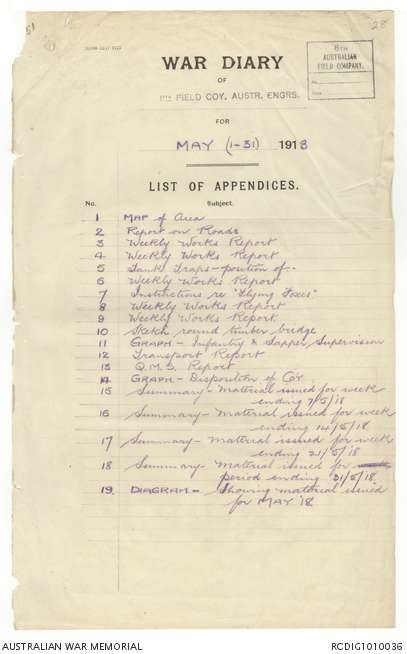 51
28
8TH
AUSTRALIAN
FIELD COMPANY.
No.
Date
WAR DIARY
OF
FIELD COY. AUSTR. ENGRS.
FOR
MAY (1-31) 1918
LIST OF APPENDICES.
No. Subject.
1 MAP of Area
2 Report on Roads
3 Weekly Works Report
4 Weekly Works Report
5 Tank Traps - position of -
6 Weekly Works Report
7 Instructions re "Flying Foxes"
8 Weekly Works Report
9 Weekly Works Report
10 Sketch round timber bridge
11 GRAPH - Infantry & Sapper Supervision
12 Transport Report
13 Q.M.S. Report
14 GRAPH - Disposition of Coy
15 Summary - Material issued for week
ending 7/5/18
16 Summary - Material issued for week
ending 14/5/18
17 Summary - Material issued for week
ending 21/5/18
18 Summary - Material issued for
period ending 31/5/18
19. DIAGRAM - Showing material issued
for MAY '18.
AUSTRALIAN WAR MEMORIAL
RCDIG1010036